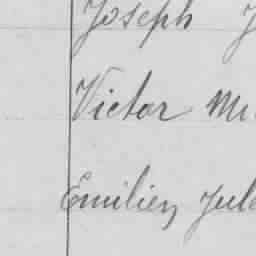 Joseph J
Victor Mi
Emilien Jule